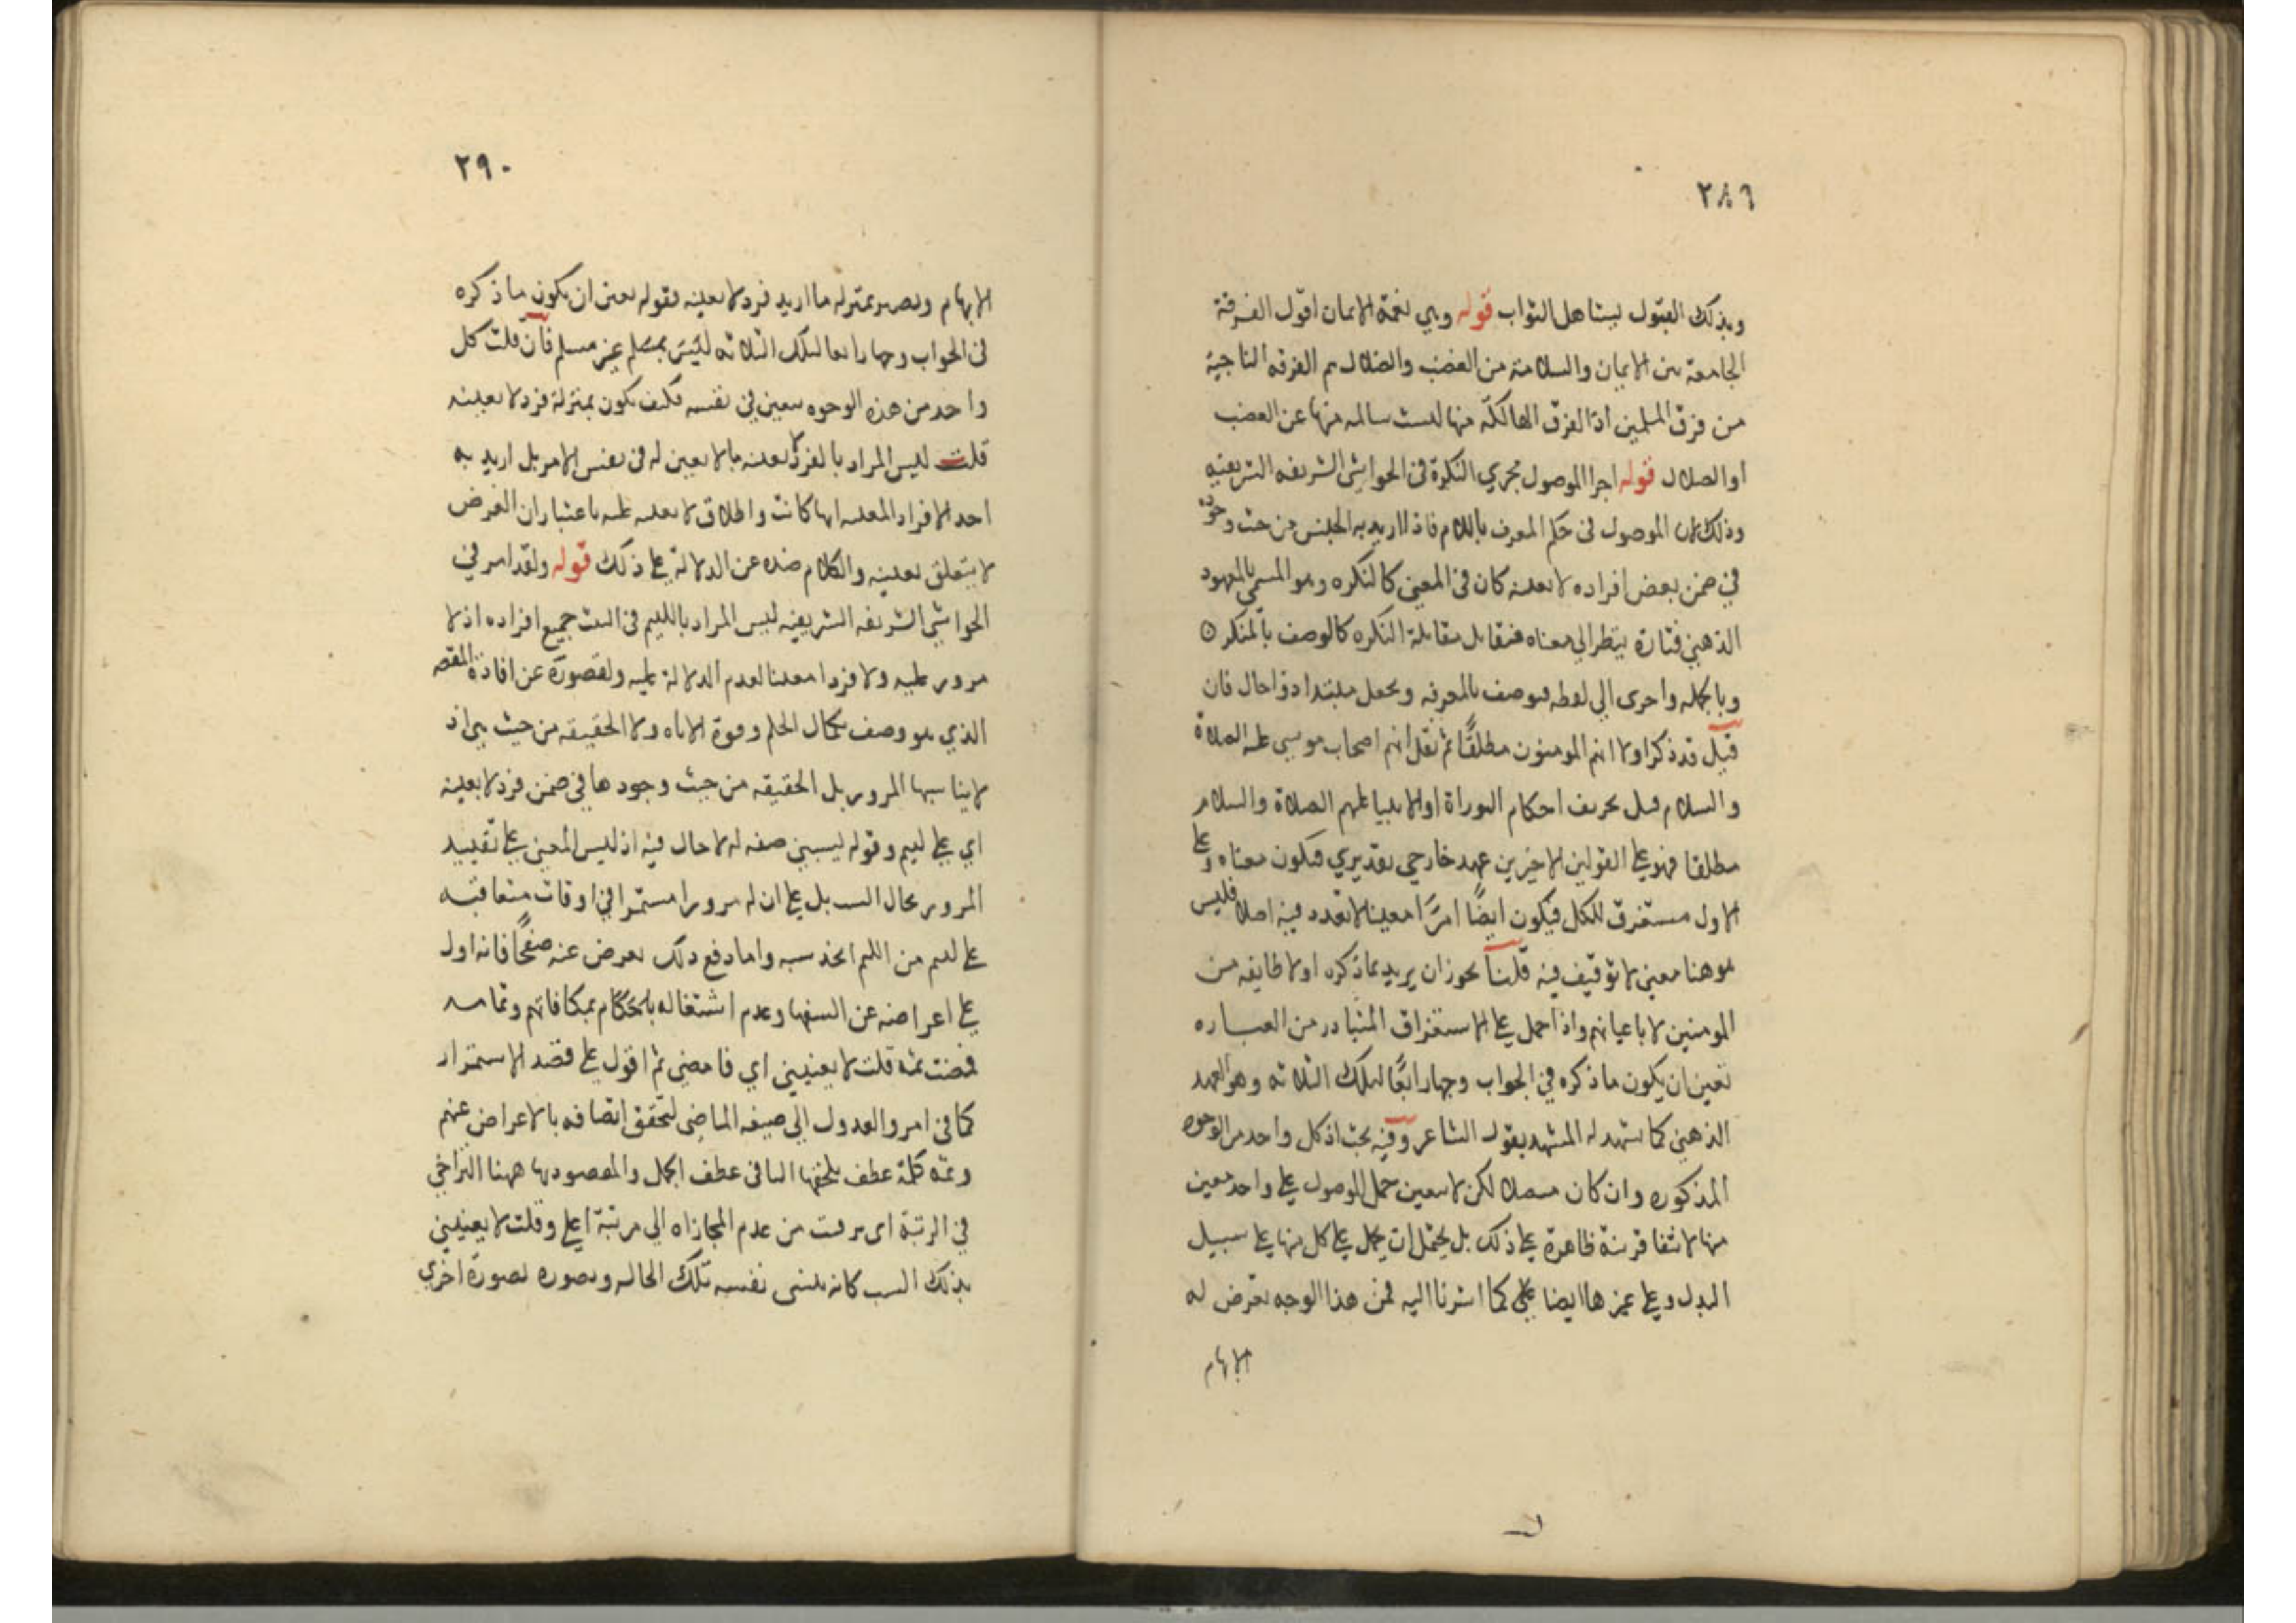 ٢٨٩
وبذلك القبول يستاهل الثواب قوله وهي نعمة الايمان اقول الفرقة
الجامعة بين الايمان والسلامة من الغضب والضلال هم الفرقه الناجية
من فرق المسلمين اذ الفرق الهالكة منها ليست سالمه منها عن الغضب
او الضلال قوله اجرا الموصول مجري النكرة في الحواشي الشريفه الشريفيه
وذلك لان الموصول في حكم المعرف باللام فاذا اريد به الجنس من حيث وجوده
في ضمن بعض افراده لا بعينه كان في المعنى كالنكره وهو المسمى بالمعهود
الذهني فتارة ينظر الي معناه فيقابل مقابلة النكره كالوصف بالمنكر
وبالجمله واخرى الي لفظه فيوصف بالمعرفه ويجعل مبتدا وذا حال فان
قيل قد ذكر اولا انهم المومنون مطلقًا ثم نقل انهم اصحاب موسى عليه الصلاة
والسلام قبل تحريف احكام التوراة او الانبيا عليهم الصلاة والسلام
مطلقا فهو على القولين الاخيرين عهد خارجي تقديري فيكون معناه وعلى
الاول مستغرق للكل فيكون ايضًا امرًا معينا لا تعدد فيه اصلا فليس
هو هنا معنى لا توقيف فيه قلنا يجوز ان يريد بما ذكره اولا طايفه من
المومنين لا باعيانهم واذا حمل على الاستغراق المتبادر من العباره
تعين ان يكون ما ذكره في الجواب وجها رابعًا لتلك الثلاثه وهو العهد
الذهني كما يشهد له المشهد بقول الشاعر وفيه بحث اذ كل واحد من الوجوه
المذكوره وان كان لكن لا يتعين حمل الموصول على واحد معين
منها لانتفا قرينة ظاهرة على ذلك بل يحتمل ان يحمل على كل منها على سبيل
البدل وعلى غيرها ايضا على كما اشرنا اليه فمن هذا الوجه تعرض له
الابهام
٢٩٠
الابهام ويصير بمنزله ما اريد فرد لا بعينه فقوله تعين ان يكون ما ذكره
في الجواب وجها رابعا لتلك الثلاثه ليس بمسلم غير مسلم فان قلت كل
واحد من هذه الوجوه معين في نفسه فكيف يكون بمنزلة فرد لا بعينه
قلت ليس المراد بالفرد لا بعينه ما لا تعين له في نفس الامر بل اريد به
احد الافراد المعينه ايها كانت واطلاق لا بعينه عليه باعتبار ان الغرض
لا يتعلق بعينه والكلام عن الدلالة على ذلك قوله ولقد امر في
الحواشي الشريفه الشريفيه ليس المراد باللئيم في البيت جميع افراده اذ لا
مرور عليه ولا فردا معينا لعدم الدلالة عليه ولقصوره عن افادة المقصد
الذي هو وصف بكمال الحلم وقوة الاناه ولا الحقيقه من حيث هي اذ
لا يناسبها المرور بل الحقيقه من حيث وجودها في ضمن فرد لا بعينه
اي على لئيم وقوله يسبني صفه له لا حال فيه اذ ليس المعنى على تقييد
المرور بحال السب بل على ان له مرورا مستمرا في اوقات متعاقبه
على لئيم من اللئم سبه واما دفع ذلك يعرض عنه صفحًا فانه اول
على اعراضه عن السفها وعدم اشتغاله بمكافاتهم
فمضيت ثمة قلت لا يعنيني اي فامضي ثم اقول على قصد الاستمرار
كما في امر والعدول الي صيغه الماضي لتحقق اتصافه بالاعراض عنهم
وثمه كلمة عطف يلحقها التا في عطف الجمل والمقصود بها ههنا التراخي
في الرتبة اى ترقيت من عدم المجازاه الي مرتبة اعلى وقلت لا يعنيني
بذلك السب كانه ينسى نفسه تلك الحاله ويصوره بصورة اخرى